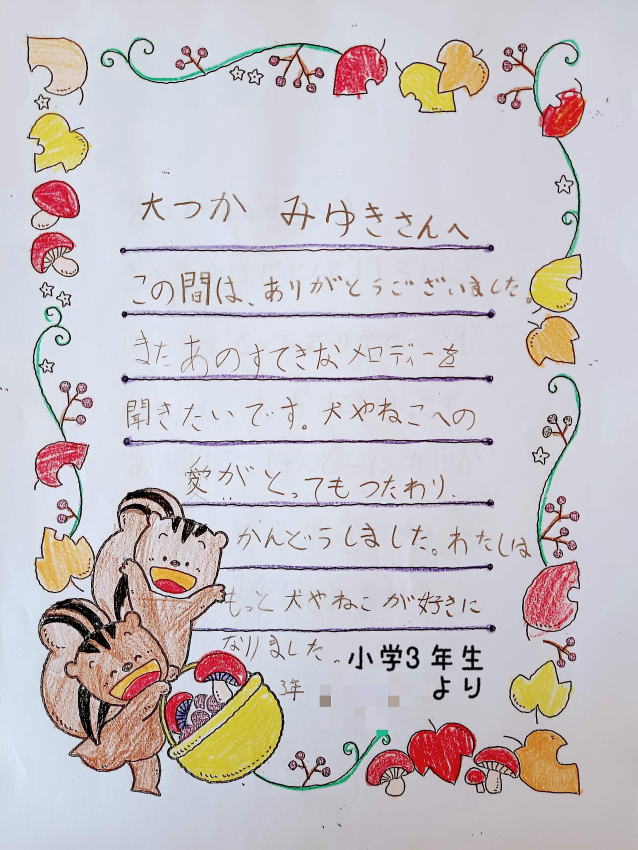 大つか みゆきさんへ
この間は、ありがとうございました。
またあのすてきなメロディーを
聞きたいです。犬やねこへの
愛がとってもつたわり、
かんどうしました。わたしは
もっと犬やねこが好きに
なりました。
小学3年生
3年
より